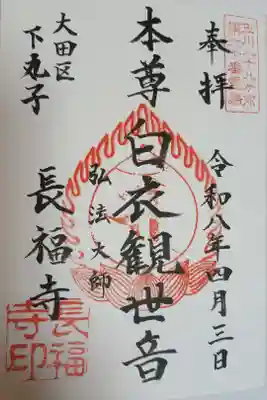 奉拝
令和八年四月三日
本尊 白衣観世音
弘法大師
大田区
下丸子
長福寺
長福
寺印